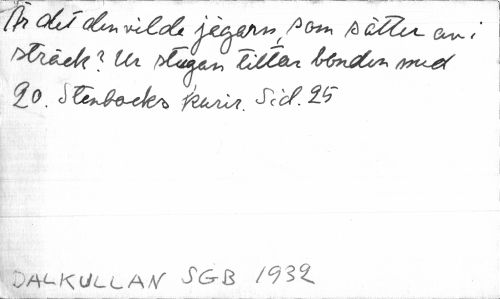 Är det den vilde jägarn, som sätter av i
sträck? Ur stugan tittar bonden med
20. Stenbocks kurir. Sid. 25
DALKULLAN SGB 1932